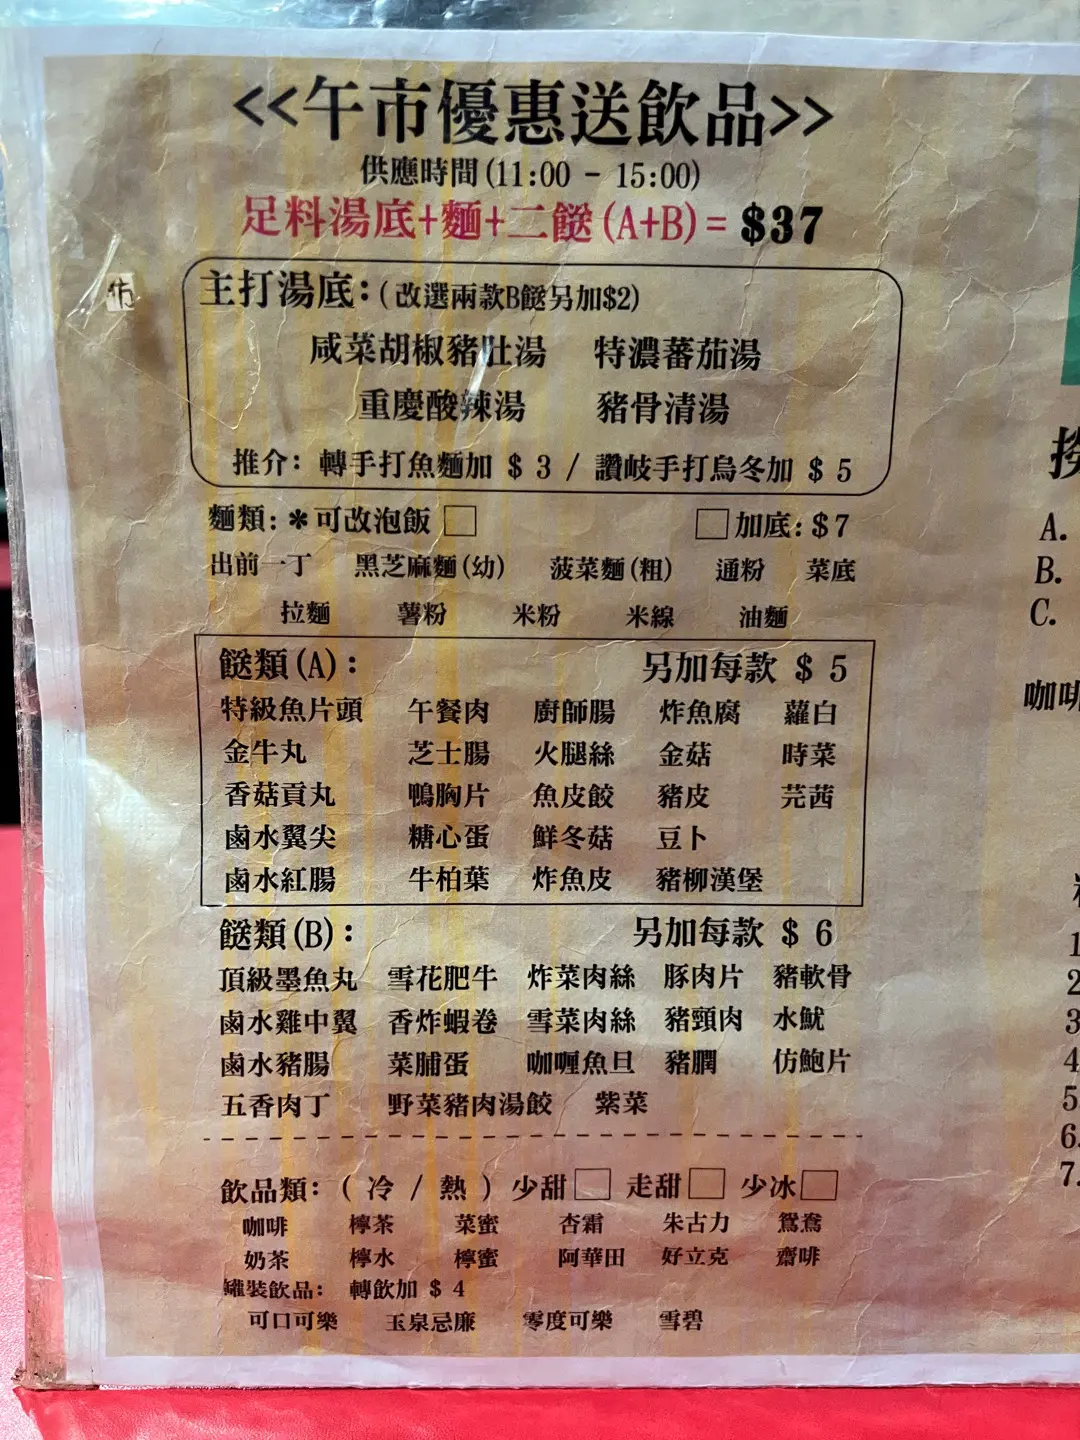 <<午市優惠送飲品>>
供應時間(11:00 - 15:00)
足料湯底+麵+二餸(A+B)= $37
主打湯底:(改選兩款B餸另加$2)
咸菜胡椒豬肚湯 特濃蕃茄湯
重慶酸辣湯 豬骨清湯
推介: 轉手打魚麵加 $ 3 / 讚岐手打烏冬加 $ 5
麵類:＊可改泡飯 □ □加底:$7
出前一丁 黑芝麻麵(幼) 菠菜麵(粗) 通粉 菜底
拉麵 薯粉 米粉 米線 油麵
餸類(A): 另加每款 $ 5
特級魚片頭 午餐肉 廚師腸 炸魚腐 蘿白
金牛丸 芝士腸 火腿絲 金菇 時菜
香菇貢丸 鴨胸片 魚皮餃 豬皮 芫茜
鹵水翼尖 糖心蛋 鮮冬菇 豆卜
鹵水紅腸 牛柏葉 炸魚皮 豬柳漢堡
餸類(B): 另加每款 $ 6
頂級墨魚丸 雪花肥牛 炸菜肉絲 豚肉片 豬軟骨
鹵水雞中翼 香炸蝦卷 雪菜肉絲 豬頸肉 水魷
鹵水豬腸 菜脯蛋 咖喱魚旦 豬膶 仿鮑片
五香肉丁 野菜豬肉湯餃 紫菜
飲品類: ( 冷 / 熱 ) 少甜□ 走甜□ 少冰□
咖啡 檸茶 菜蜜 杏霜 朱古力 鴛鴦
奶茶 檸水 檸蜜 阿華田 好立克 齋啡
罐裝飲品: 轉飲加 $ 4
可口可樂 玉泉忌廉 零度可樂 雪碧
A.
B.
C.
咖啡
1
2
3
4
5
6.
7.